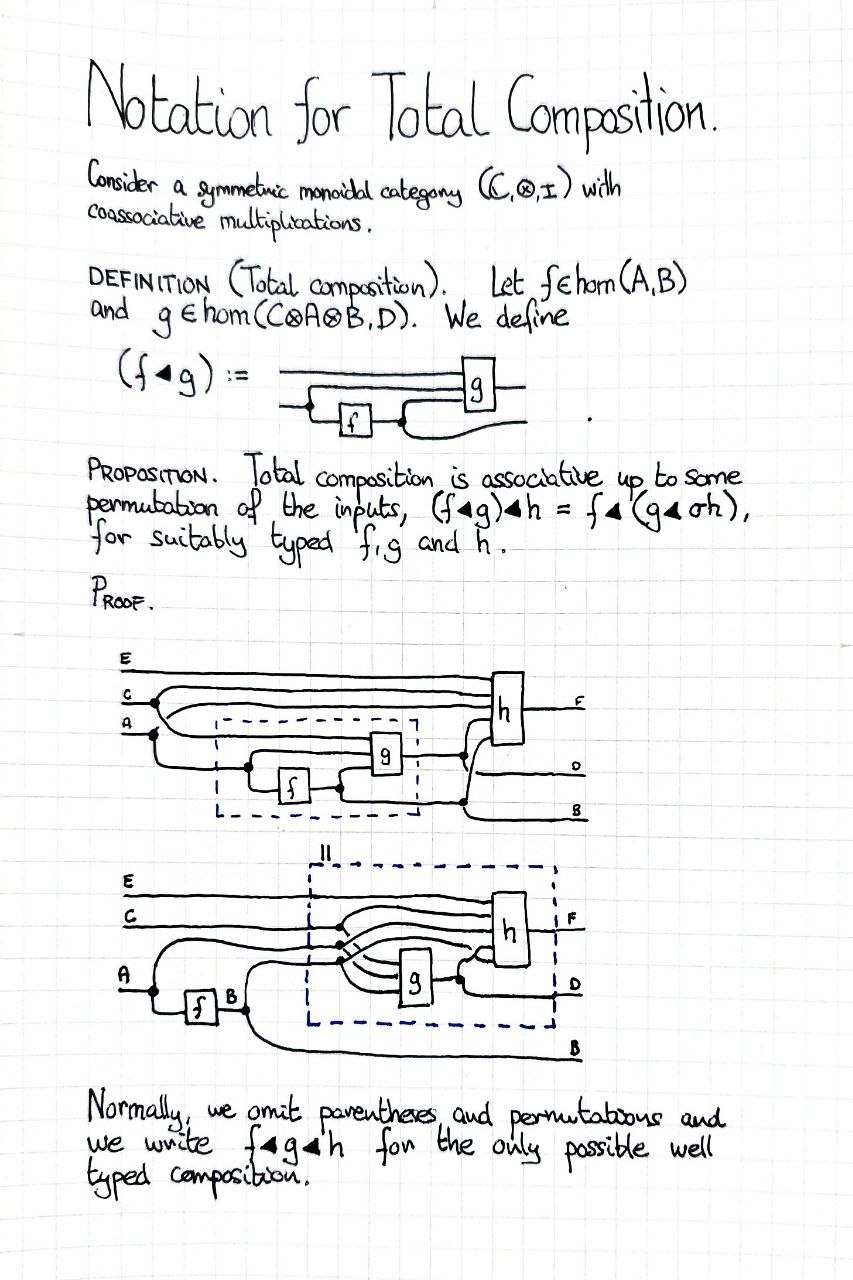 Notation for Total Composition.
Consider a symmetric monoidal category (ℂ,⊗,I) with
coassociative multiplications.
DEFINITION (Total composition). Let f∈hom(A,B)
and g∈hom(C⊗A⊗B,D). We define
(f◂g) :=
g
f
PROPOSITION. Total composition is associative up to some
permutation of the inputs, (f◂g)◂h = f◂(g◂σh),
for suitably typed f,g and h.
PROOF.
E
C
A
h
F
g
D
f
B
||
E
C
h
F
A
g
D
f
B
B
Normally, we omit parentheses and permutations and
we write f◂g◂h for the only possible well
typed composition.